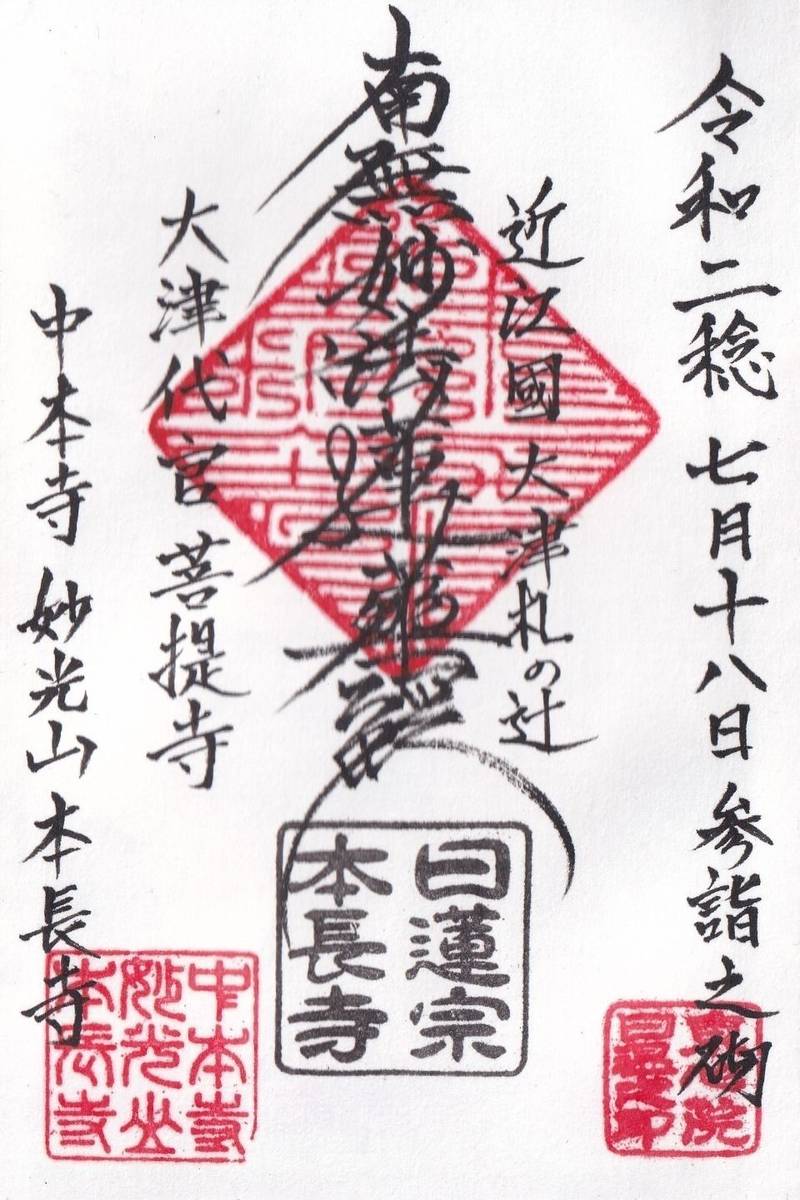 令和二稔 七月十八日 参詣之砌
近江國 大津札の辻
南無妙法蓮華経
大津代官 菩提寺
中本寺 妙光山 本長寺
日蓮宗
本長寺
中本寺
妙光山
本長寺